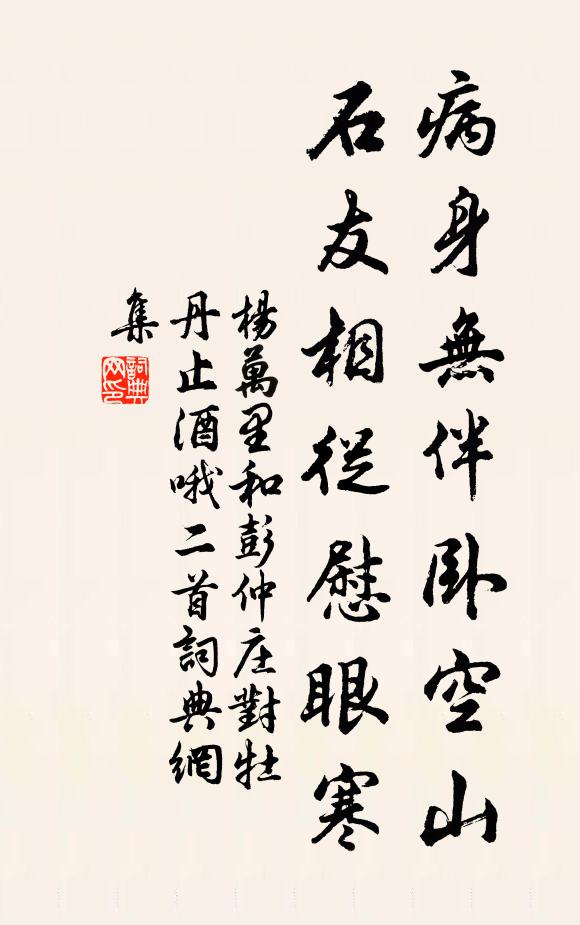 病身無伴卧空山
石友相從慰眼寒
楊萬里和彭仲庄對牡
丹止酒哦二首詞典網
集
詞典
网印